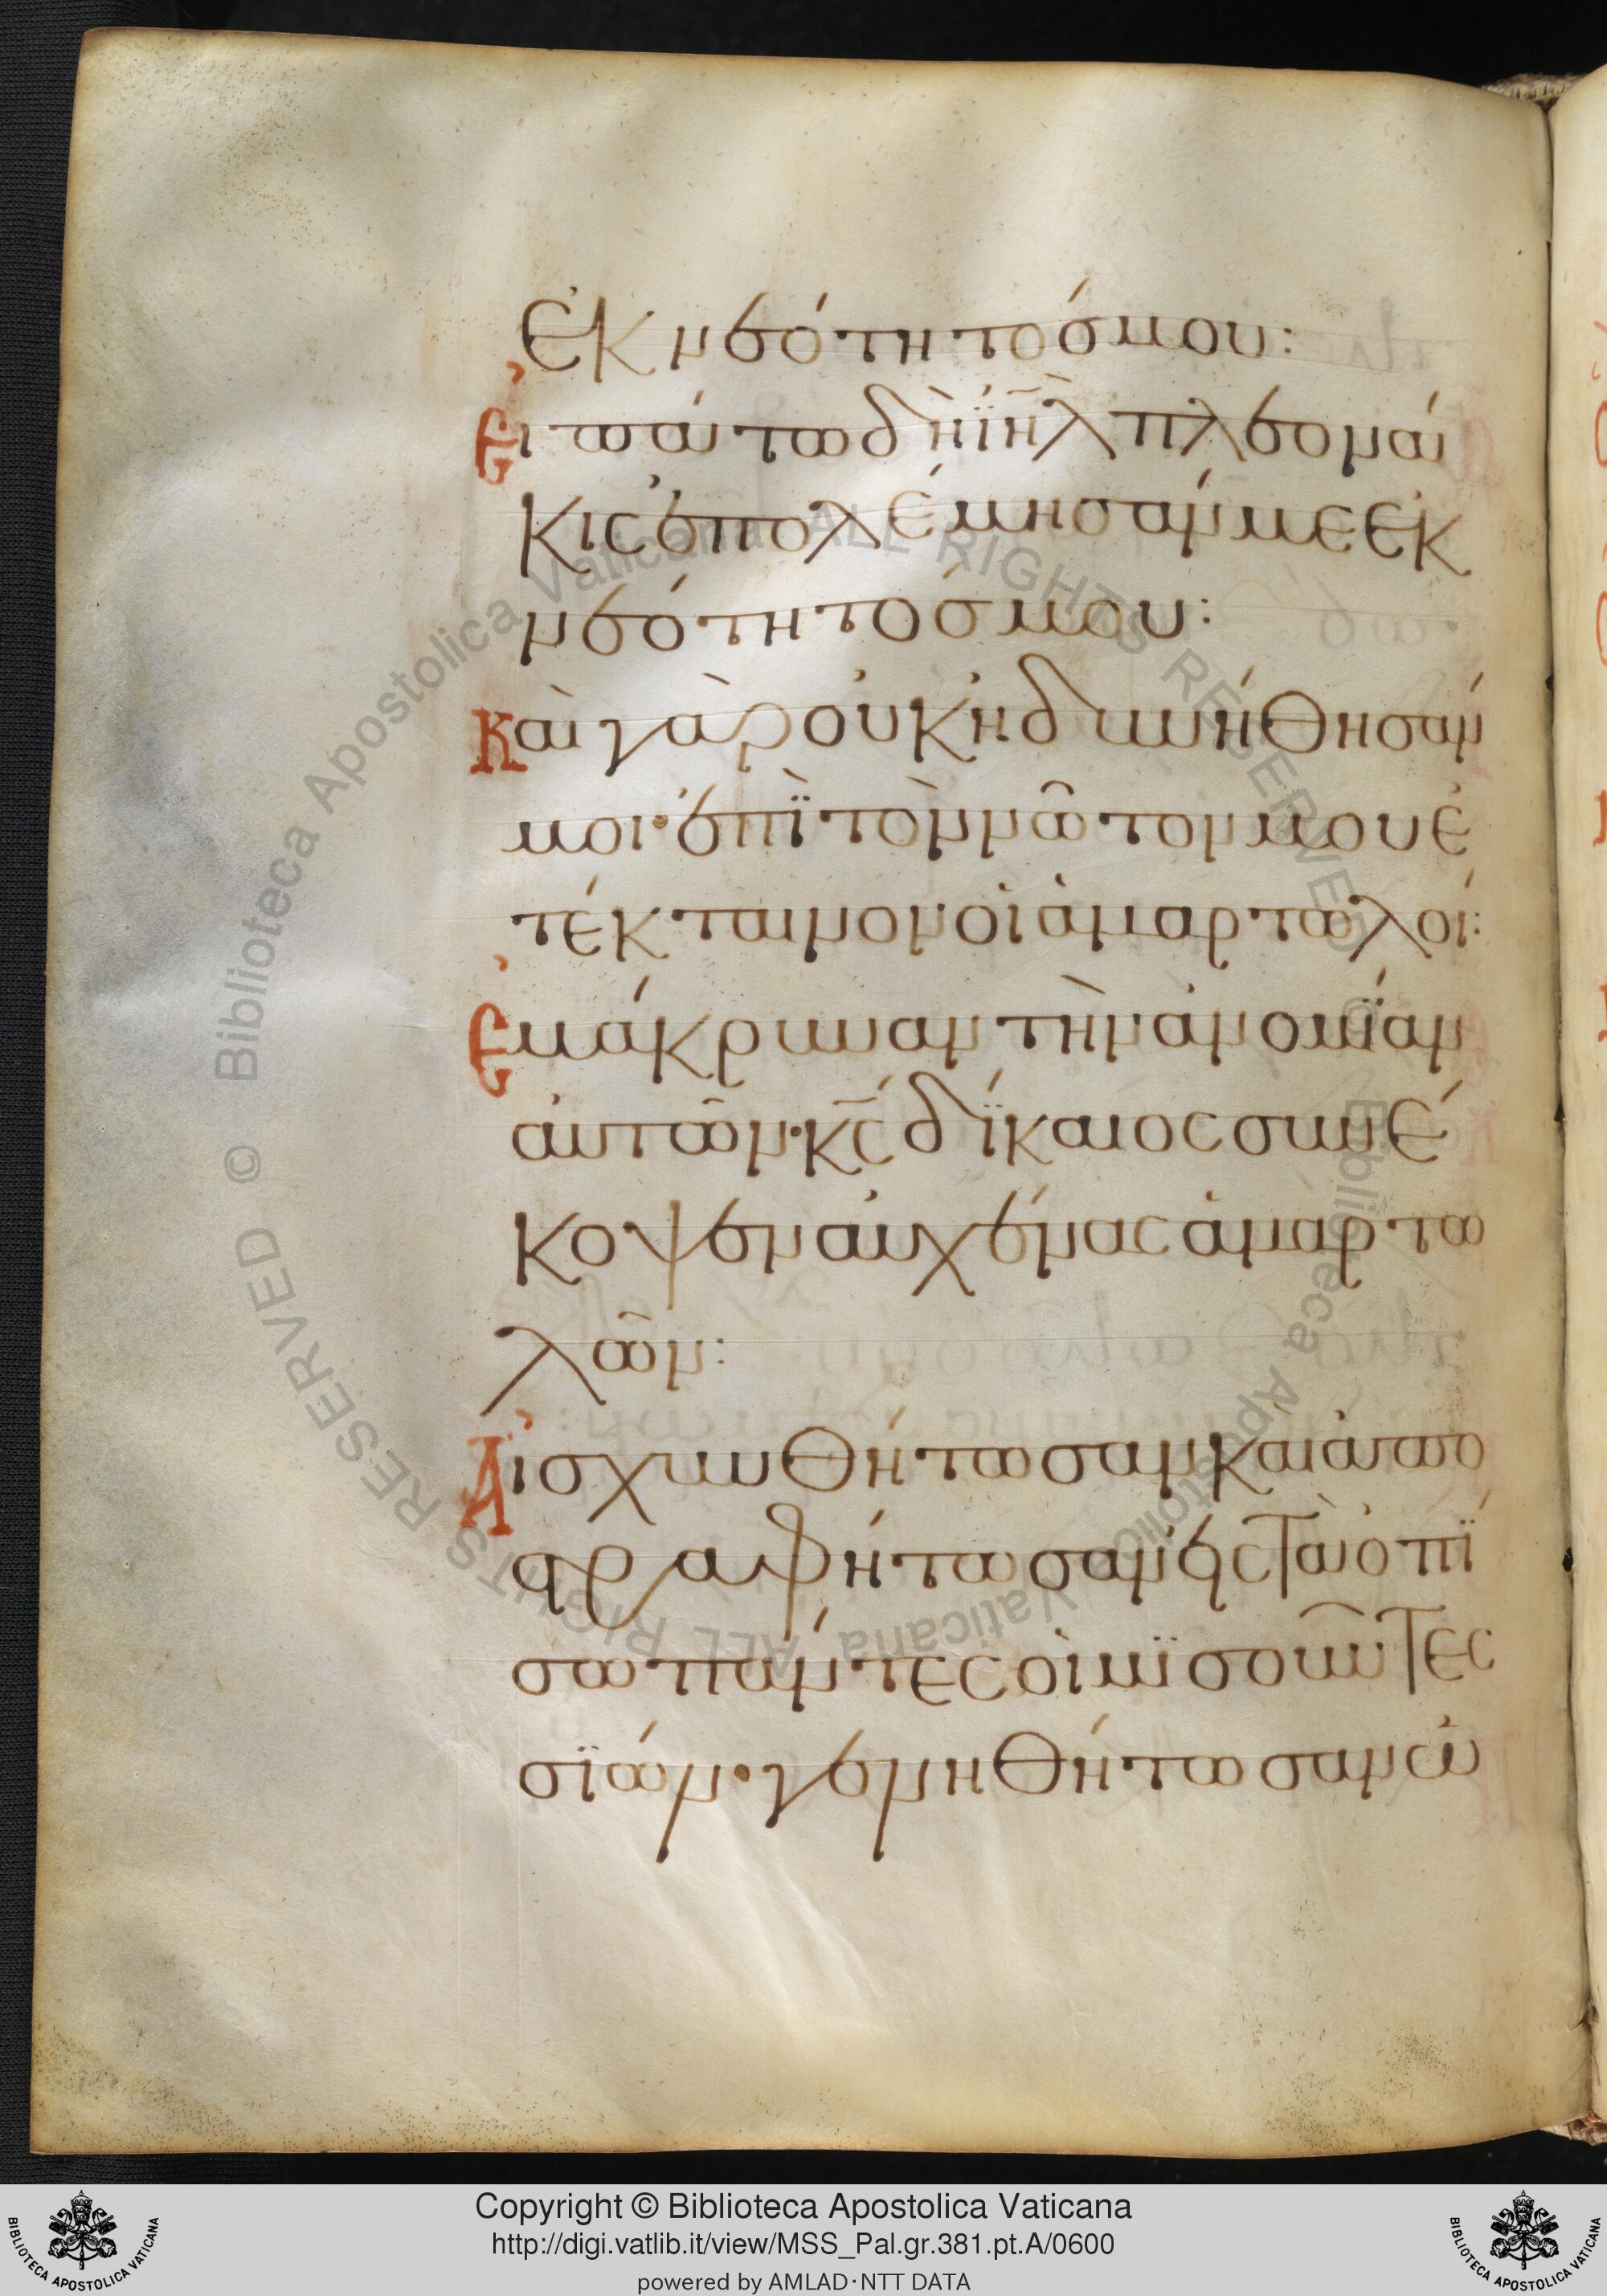 ἐκ νεότητόσ μου:
Εἰπάτω δὴ ἰη̅λ πλεομά
κισ ἐπολέμησάν με ἐκ
νεότητόσ μου:
Καὶ γὰρ οὐκ ἠδυνήθησάν
μοι· ἐπὶ τὸν νῶτον μου ἐ
τέκταινον οἱ ἁμαρτωλοί:
Ἐμάκρυναν τὴν ἀνομίαν
αὐτῶν· κ̅σ δίκαιος συνέ
κοψεν αὐχένας ἁμαρτω
λῶν:
Αἰσχυνθήτωσαν καὶ ἀπο
στραφήτωσαν εἰς τὰ ὀπί
σω πάντες οἱ μισοῦντες
σϊών· γενηθήτωσαν ὡ
Biblioteca Apostolica Vaticana ALL RIGHTS RESERVED ©
Copyright © Biblioteca Apostolica Vaticana
http://digi.vatlib.it/view/MSS_Pal.gr.381.pt.A/0600
powered by AMLAD·NTT DATA
BIBLIOTECA APOSTOLICA VATICANA
BIBLIOTECA APOSTOLICA VATICANA